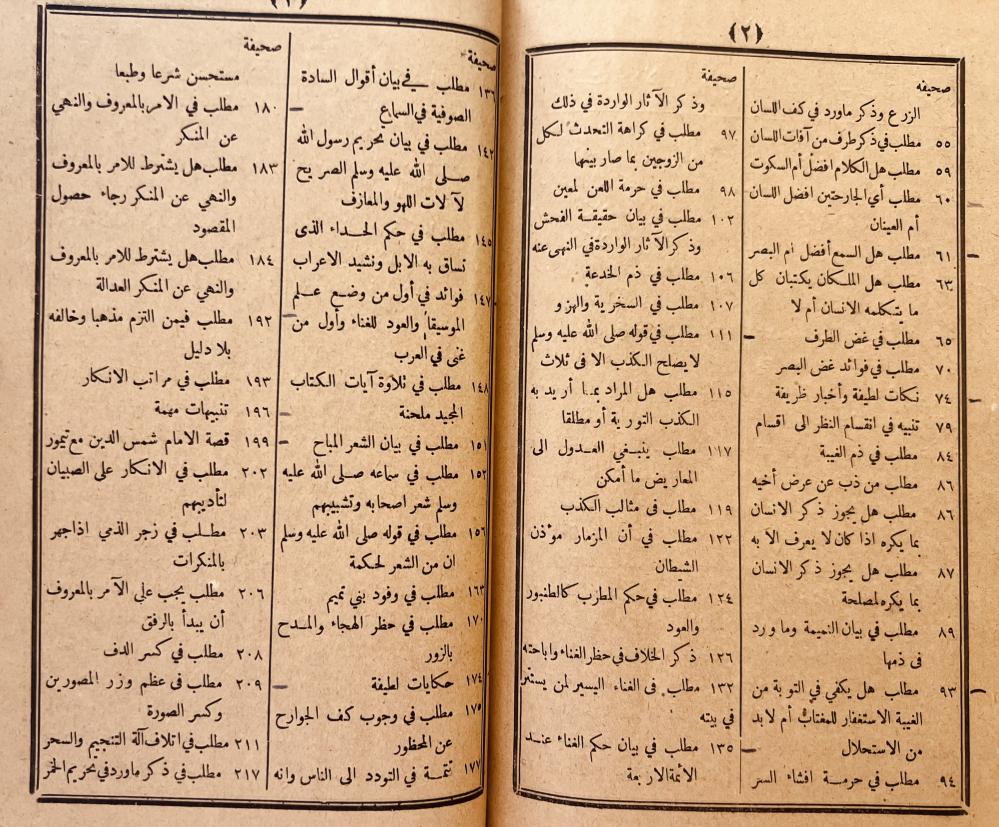 ﴿٢﴾
صحيفه
الزرع وذكر ماورد في كف اللسان
٥٥ مطلب في ذكر طرف من آفات اللسان
٥٩ مطلب هل الكلام افضل أم السكوت
٦٠ مطلب أي الجارحتين افضل اللسان
أم العينان
٦١ مطلب هل السمع أفضل ام البصر
٦٣ مطلب هل الملكان يكتبان كل
ما يتكلمه الانسان أم لا
٦٥ مطلب في غض الطرف
٧٠ مطلب في فوائد غض البصر
٧٤ نكات لطيفة وأخبار ظريفة
٧٩ تنبيه في انقسام النظر الى اقسام
٨٤ مطلب في ذم الغيبة
٨٦ مطلب من ذب عن عرض أخيه
٨٦ مطلب هل يجوز ذكر الانسان
بما يكره اذا كان لا يعرف الا به
٨٧ مطلب هل يجوز ذكر الانسان
بما يكره لمصلحة
٨٩ مطلب في بيان النميمة وما ورد
في ذمها
٩٣ مطلب هل يكفي في التوبة من
الغيبة الاستغفار للمغتاب أم لابد
من الاستحلال
٩٤ مطلب في حرمة افشاء السر
صحيفة
وذكر الآثار الواردة في ذلك
٩٧ مطلب في كراهة التحدث لكل
من الزوجين بما صار بينهما
٩٨ مطلب في حرمة اللعن لمعين
١٠٢ مطلب في بيان حقيقة الفحش
وذكر الآثار الواردة في النهى عنه
١٠٦ مطلب في ذم الخدعة
١٠٧ مطلب في السخرية والهزو
١١١ مطلب في قوله صلى الله عليه وسلم
لا يصلح الكذب الا فى ثلاث
١١٥ مطلب هل المراد بما أريد به
الكذب التورية أو مطلقا
١١٧ مطلب ينبغي العدول الى
المعاريض ما أمكن
١١٩ مطلب في مثالب الكذب
١٢٢ مطلب في أن المزمار مؤذن
الشيطان
١٢٤ مطلب في حكم المطرب كالطنبور
والعود
١٢٦ ذكر الخلاف في حظر الغناء واباحته
١٣٢ مطلب في الغناء اليسير لمن يستتر
في بيته
١٣٥ مطلب في بيان حكم الغناء عند
الأئمة الاربعة
﴿٣﴾
صحيفة
١٣٦ مطلب في بيان أقوال السادة
الصوفية في السماع
١٤٢ مطلب في بيان تحريم رسول الله
صلى الله عليه وسلم الصريح
لآلات اللهو والمعازف
١٤٥ مطلب في حكم الحداء الذى
تساق به الابل ونشيد الاعراب
١٤٧ فوائد في أول من وضع علم
الموسيقا والعود للغناء وأول من
غنى في العرب
١٤٨ مطلب في تلاوة آيات الكتاب
المجيد ملحنة
١٥١ مطلب في بيان الشعر المباح
١٥٢ مطلب في سماعه صلى الله عليه
وسلم شعر اصحابه وتشبيبهم
١٥٦ مطلب في قوله صلى الله عليه وسلم
ان من الشعر لحكمة
١٦٣ مطلب في وفود بني تميم
١٧٠ مطلب في حظر الهجاء والمدح
بالزور
١٧٤ حكايات لطيفة
١٧٥ مطلب في وجوب كف الجوارح
عن المحظور
١٧٧ تتمة في التودد الى الناس وانه
صحيفة
مستحسن شرعا وطبعا
١٨٠ مطلب في الامر بالمعروف والنهي
عن المنكر
١٨٣ مطلب هل يشترط للامر بالمعروف
والنهي عن المنكر رجاء حصول
المقصود
١٨٤ مطلب هل يشترط للامر بالمعروف
والنهي عن المنكر العدالة
١٩٢ مطلب فيمن التزم مذهبا وخالفه
بلا دليل
١٩٣ مطلب في مراتب الانكار
١٩٦ تنبيهات مهمة
١٩٩ قصة الامام شمس الدين مع تيمور
٢٠٢ مطلب في الانكار على الصبيان
لتأديبهم
٢٠٣ مطلب في زجر الذمي اذا جهر
بالمنكرات
٢٠٦ مطلب يجب على الآمر بالمعروف
أن يبدأ بالرفق
٢٠٨ مطلب في كسر الدف
٢٠٩ مطلب فى عظم وزر المصورين
وكسر الصورة
٢١١ مطلب في اتلاف آلة التنجيم والسحر
٢١٧ مطلب في ذكر ماورد في تحريم الخمر